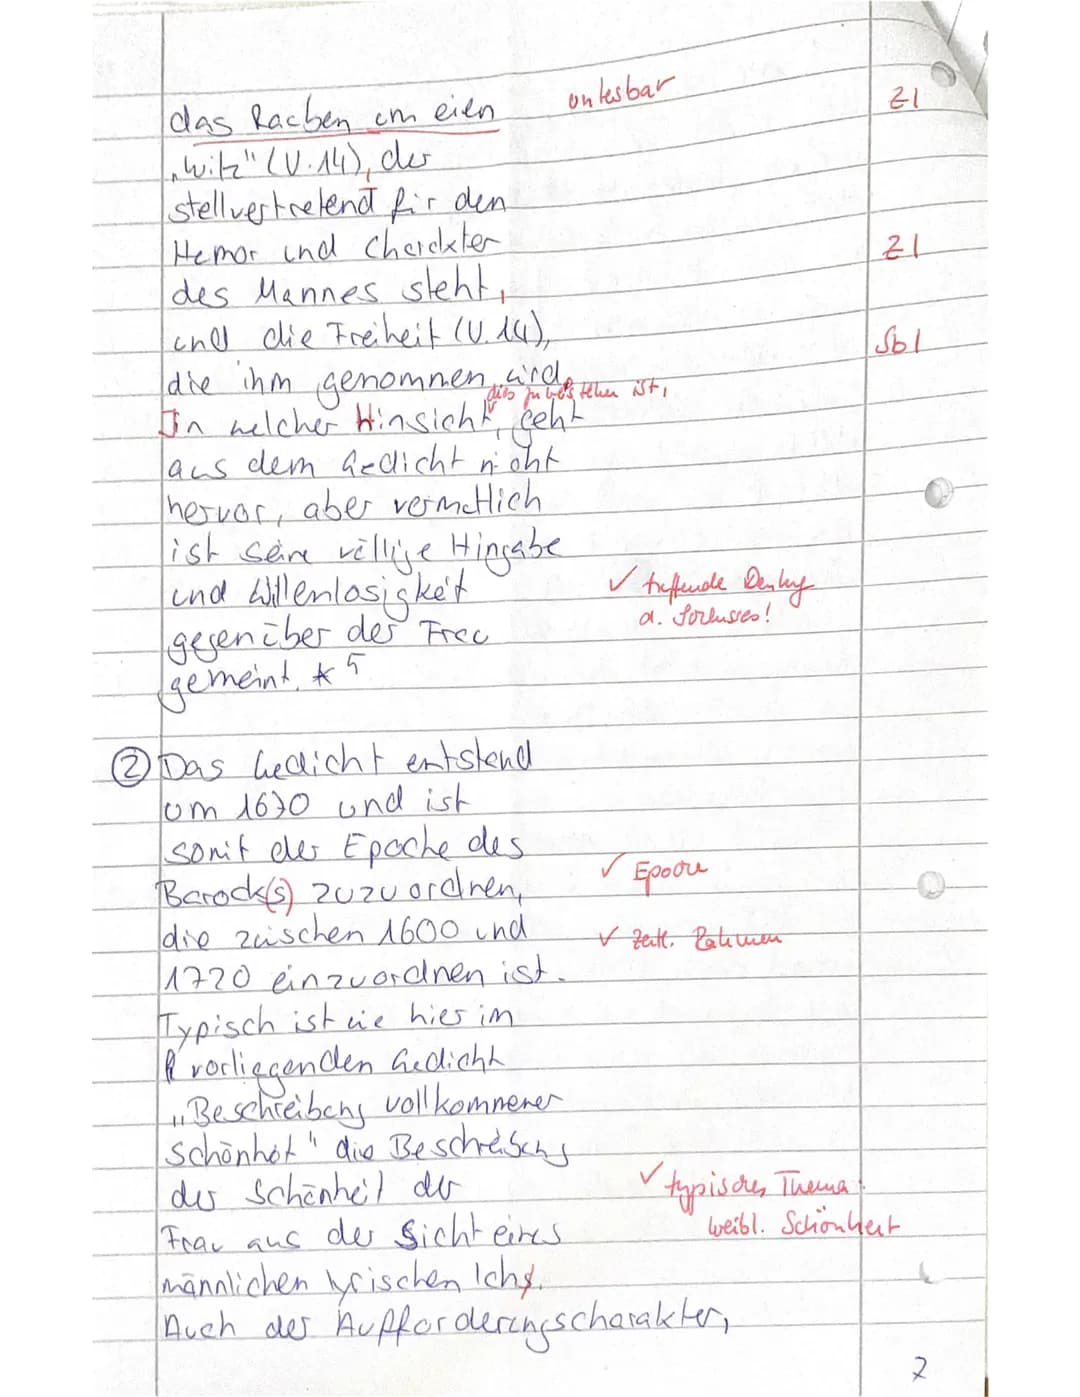 das Racben um eien unlesbar Z I
„Witz" (V. 14), der
stellvertretend für den
Hemor und Charakter Z I
des Mannes steht,
und die Freiheit (V. 14), Sb I
die ihm genommen wird.
dies zu verstehen ist,
In welcher Hinsicht, geht
aus dem Gedicht nicht
hervor, aber vermutlich
ist seine völlige Hingabe
und Willenlosigkeit ✓ treffende Deutung
gegenüber der Frau d. Schlusses!
gemeint. * 5
② Das Gedicht entstand
um 1670 und ist
somit der Epoche des
Barock(s) zuzuordnen, ✓ Epoche
die zwischen 1600 und ✓ zeitl. Rahmen
1720 einzuordnen ist.
Typisch ist wie hier im
vorliegenden Gedicht
„Beschreibung vollkommener
Schönheit" die Beschreibung
der Schönheit der ✓ typisches Thema:
Frau aus der Sicht eines weibl. Schönheit
männlichen lyrischen Ichs.
Auch der Aufforderungscharakter,
7